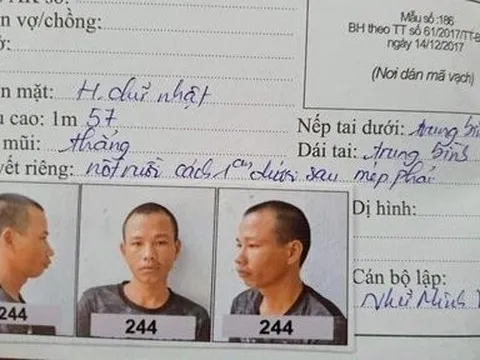 ên vợ/chồng:
Mẫu số :186
BH theo TT số 61/2017/TT-B
ngày 14/12/2017
(Nơi dán mã vạch)
n mặt: H. chữ nhật
cao: 1m 57
Nếp tai dưới: trung bình
mũi: thẳng
Dái tai: trung bình
vết riêng: nốt ruồi cách 1cm dưới sau mép phải
Dị hình:
Cán bộ lập:
Như Minh
244
244
244